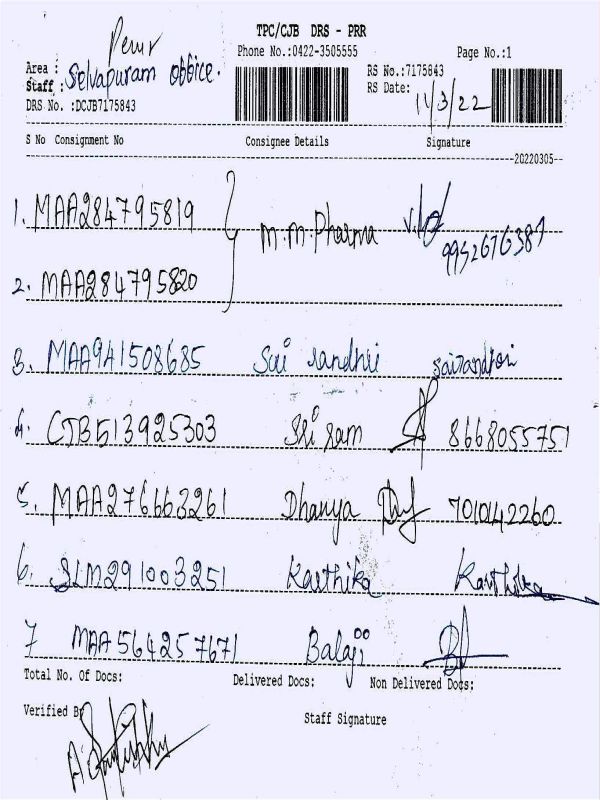 TPC/CJB DRS - PRR
Perur
Phone No.:0422-3505555 Page No.:1
Area : Selvapuram office.
Staff :
RS No.:7175843
RS Date: 11/3/22
DRS No. :DCJB7175843
S No Consignment No Consignee Details Signature
20220305--
1. MAA284795819 M.M.Pharma 9952676387
2. MAA284795820
3. MAA941508685 Sri nandhi
4. CJB513925303 Sri Ram 8668055751
5. MAA276663261 Dhanya 7010142260
6. SLM291003251 Karthika Karthika
7 MAA564257671 Balaji
Total No. Of Docs: Delivered Docs: Non Delivered Docs:
Verified By
Staff Signature